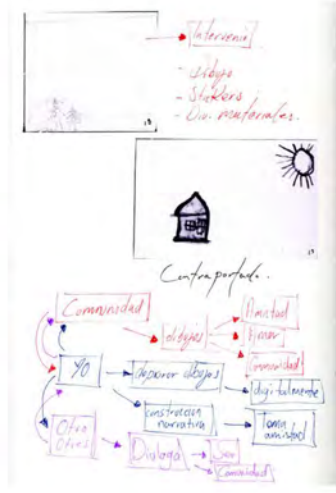 Intervenir
- dibujo
- Stickers
- Div. materiales.
18
17
Contraportada.
Comunidad
dibujos
Amistad
Amor
Comunidad
YO
dibujos
digitalmente
construcción
narrativa
Tema
amistad
Otro
Otros
Dialogo
Comunidad